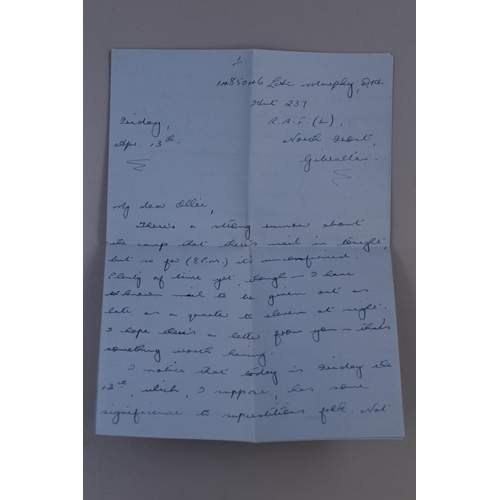 1
1485046 Murphy,
Hut 237
Friday,
R.A.F. (L),
Apr. 13th.
North Front,
Gibraltar.
My dear Ollie,
There's a strong rumour about
the camp that there's mail in tonight,
but so far (8 P.m.) it's unconfirmed.
Plenty of time yet, though — I have
known mail to be given out as
late as a quarter to eleven at night.
I hope there's a letter from you — that's
something worth having.
I notice that today is Friday the
13th, which, I suppose, has some
significance to superstitious folk. Not